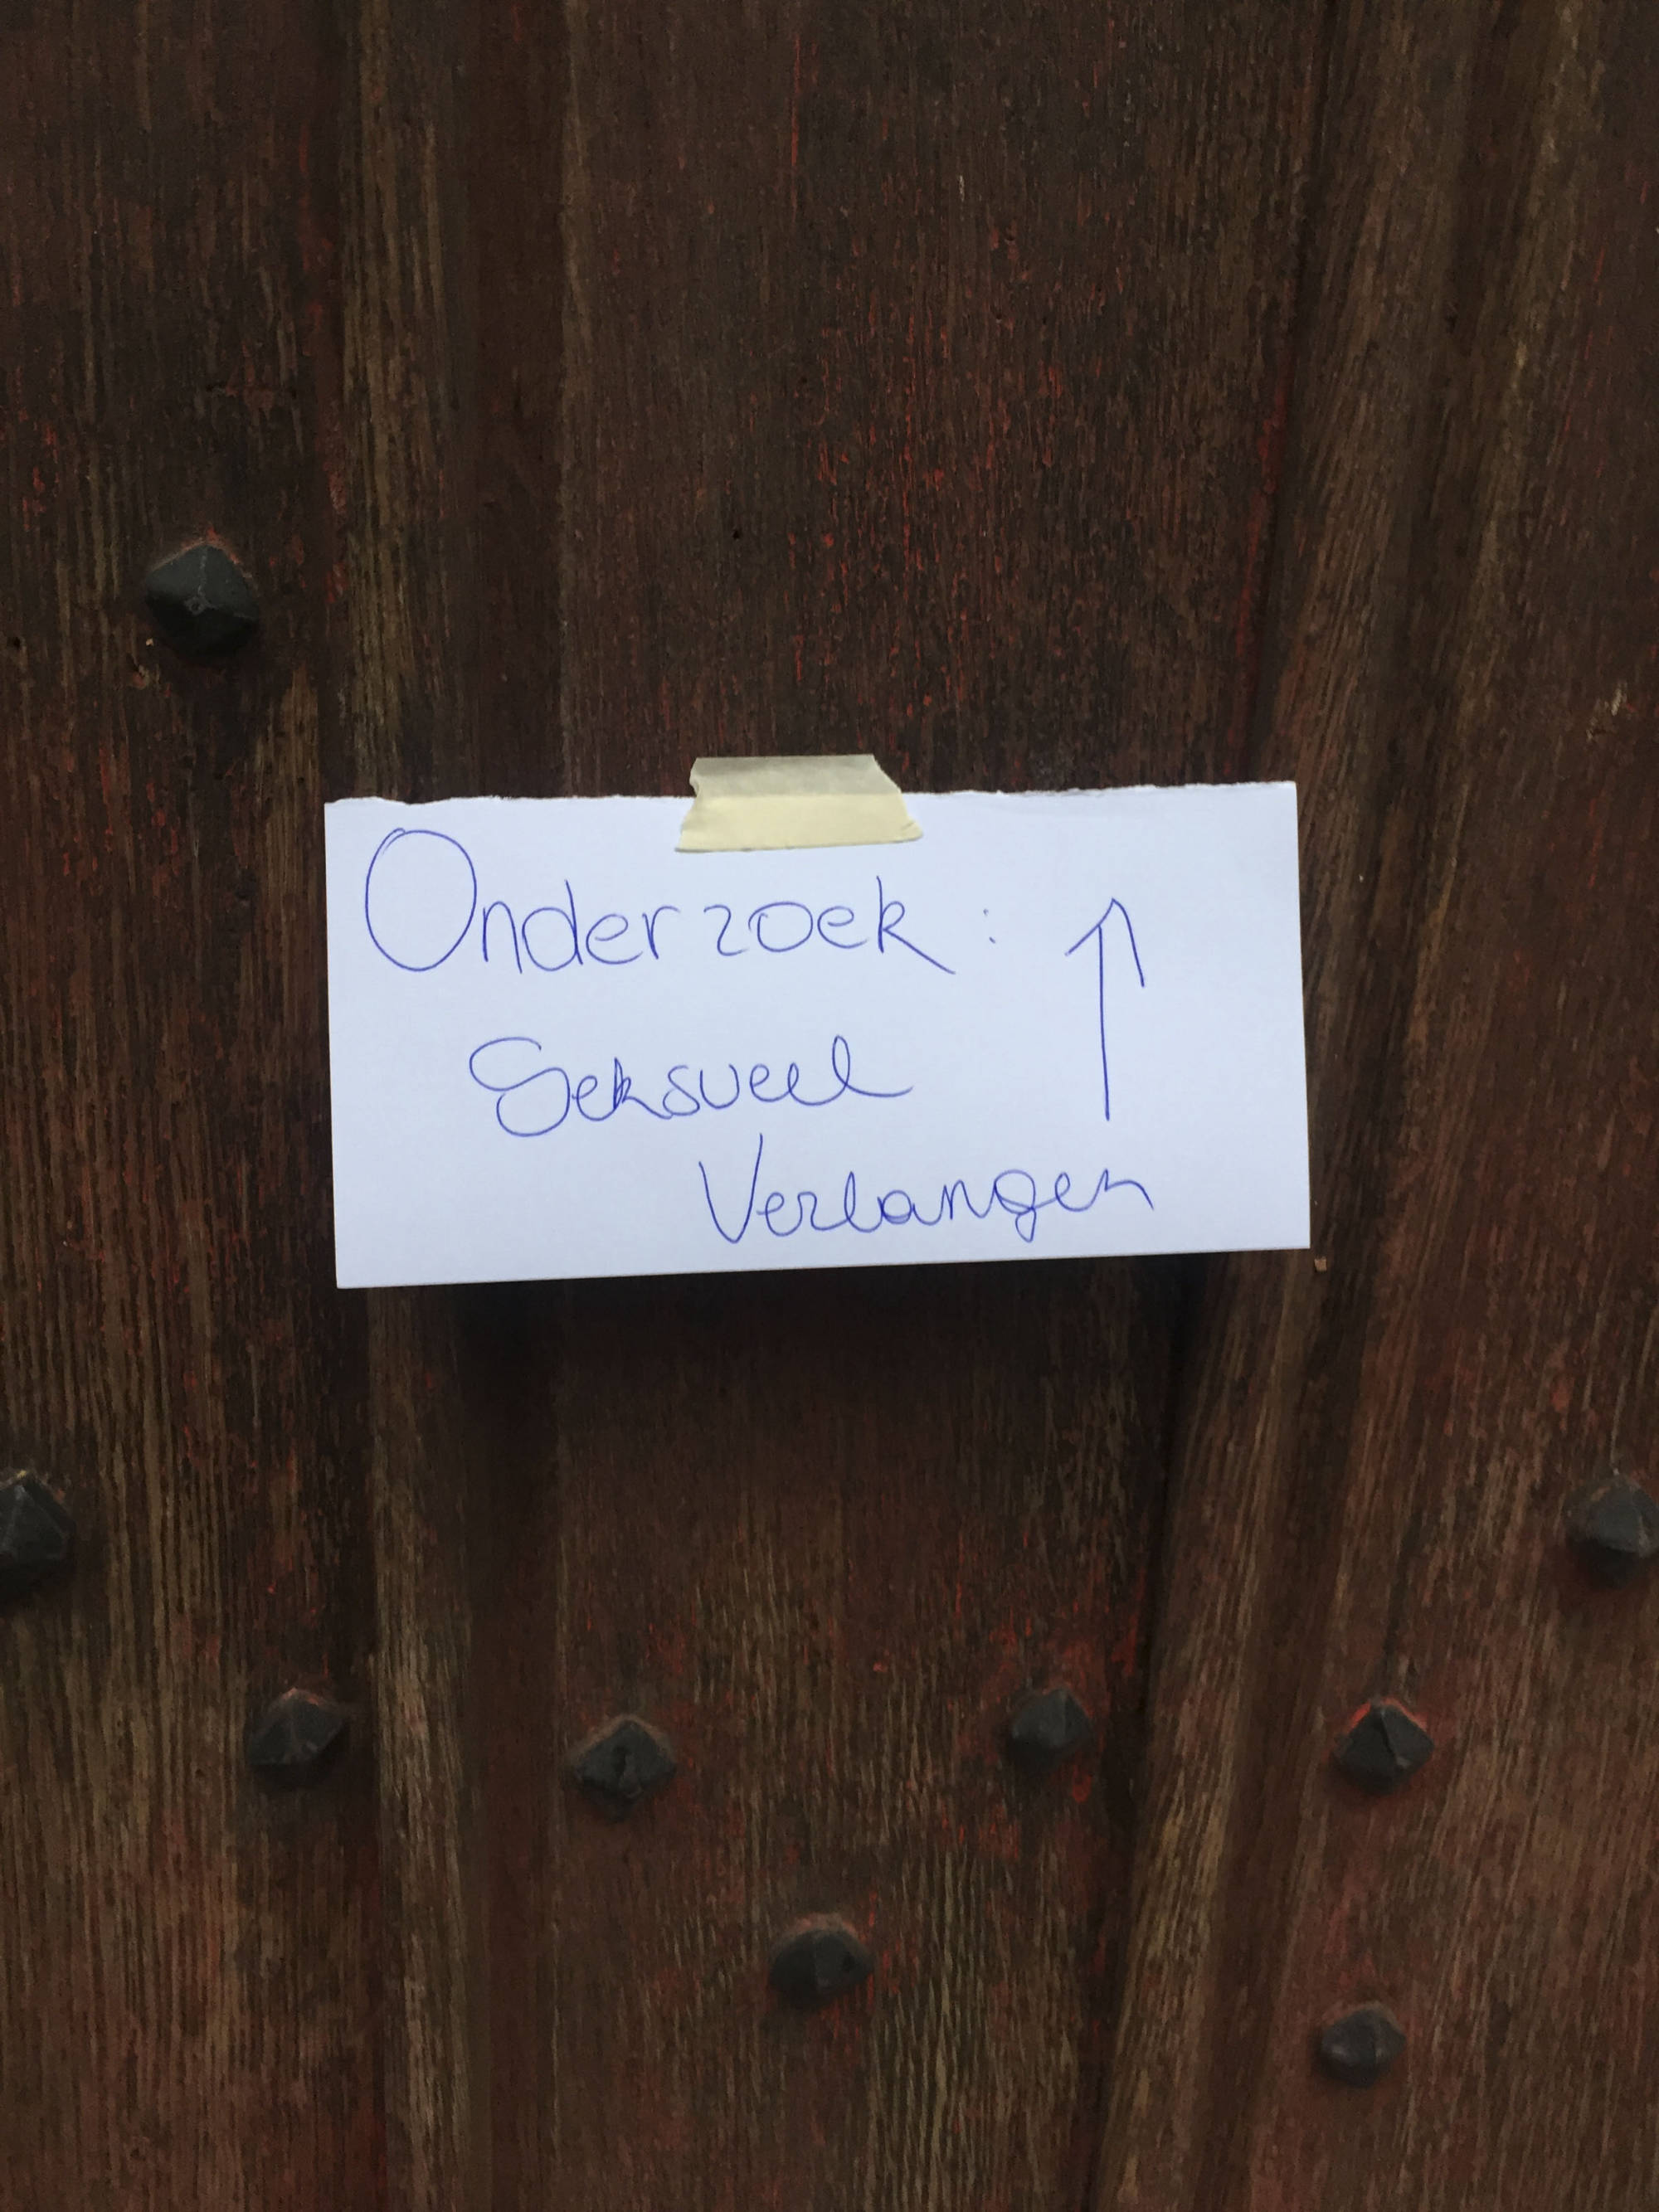 Onderzoek: ↑
Seksueel
Verlangen